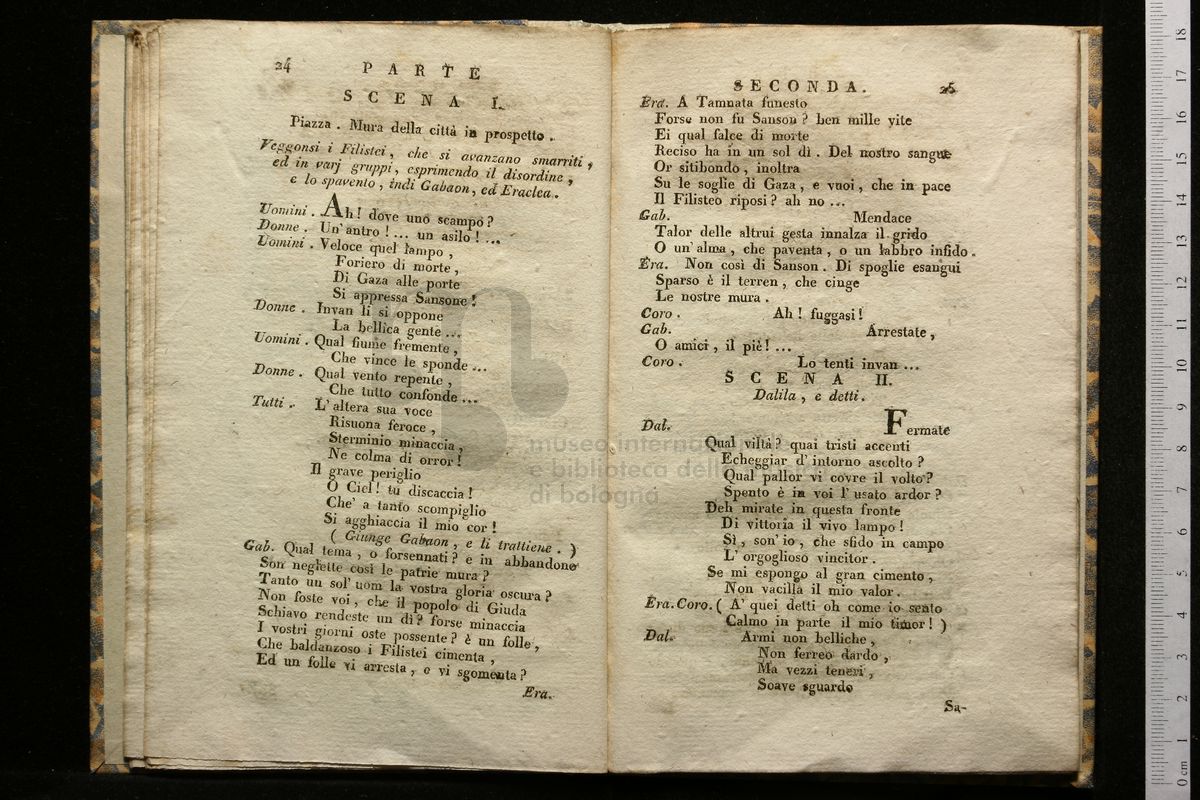 24 PARTE
SCENA I.
Piazza. Mura della città in prospetto.
Veggonsi i Filistei, che si avanzano smarriti,
ed in varj gruppi, esprimendo il disordine,
e lo spavento, indi Gabaon, ed Eraclea.
Uomini. Ah! dove uno scampo?
Donne. Un'antro!... un asilo!...
Uomini. Veloce quel lampo,
Foriero di morte,
Di Gaza alle porte
Si appressa Sansone!
Donne. Invan li si oppone
La bellica gente...
Uomini. Qual fiume fremente,
Che vince le sponde...
Donne. Qual vento repente,
Che tutto confonde...
Tutti. L'altera sua voce
Risuona feroce,
Sterminio minaccia,
Ne colma di orror!
Il grave periglio
O Ciel! tu discaccia!
Che' a tanto scompiglio
Si agghiaccia il mio cor!
( Giunge Gabaon, e li trattiene. )
Gab. Qual tema, o forsennati? e in abbandono
Son neglette così le patrie mura?
Tanto un sol' uom la vostra gloria oscura?
Non foste voi, che il popolo di Giuda
Schiavo rendeste un dì? forse minaccia
I vostri giorni oste possente? è un folle,
Che baldanzoso i Filistei cimenta,
Ed un folle vi arresta, e vi sgomenta?
Era.
SECONDA. 25
Era. A Tamnata funesto
Forse non fu Sanson? ben mille vite
Ei qual falce di morte
Reciso ha in un sol dì. Del nostro sangue
Or sitibondo, inoltra
Su le soglie di Gaza, e vuoi, che in pace
Il Filisteo riposi? ah no...
Gab. Mendace
Talor delle altrui gesta innalza il grido
O un'alma, che paventa, o un labbro infido.
Era. Non così di Sanson. Di spoglie esangui
Sparso è il terren, che cinge
Le nostre mura.
Coro. Ah! fuggasi!
Gab. Arrestate,
O amici, il piè!...
Coro. Lo tenti invan...
SCENA II.
Dalila, e detti.
Dal. Fermate
Qual viltà? quai tristi accenti
Echeggiar d'intorno ascolto?
Qual pallor vi covre il volto?
Spento è in voi l'usato ardor?
Deh mirate in questa fronte
Di vittoria il vivo lampo!
Sì, son'io, che sfido in campo
L'orgoglioso vincitor.
Se mi espongo al gran cimento,
Non vacilla il mio valor.
Era. Coro. ( A' quei detti oh come io sento
Calmo in parte il mio timor! )
Dal. Armi non belliche,
Non ferreo dardo,
Ma vezzi teneri,
Soave sguardo
Sa-
museo interna
e biblioteca dell
di bologna
0 cm 1 2 3 4 5 6 7 8 9 10 11 12 13 14 15 16 17 18